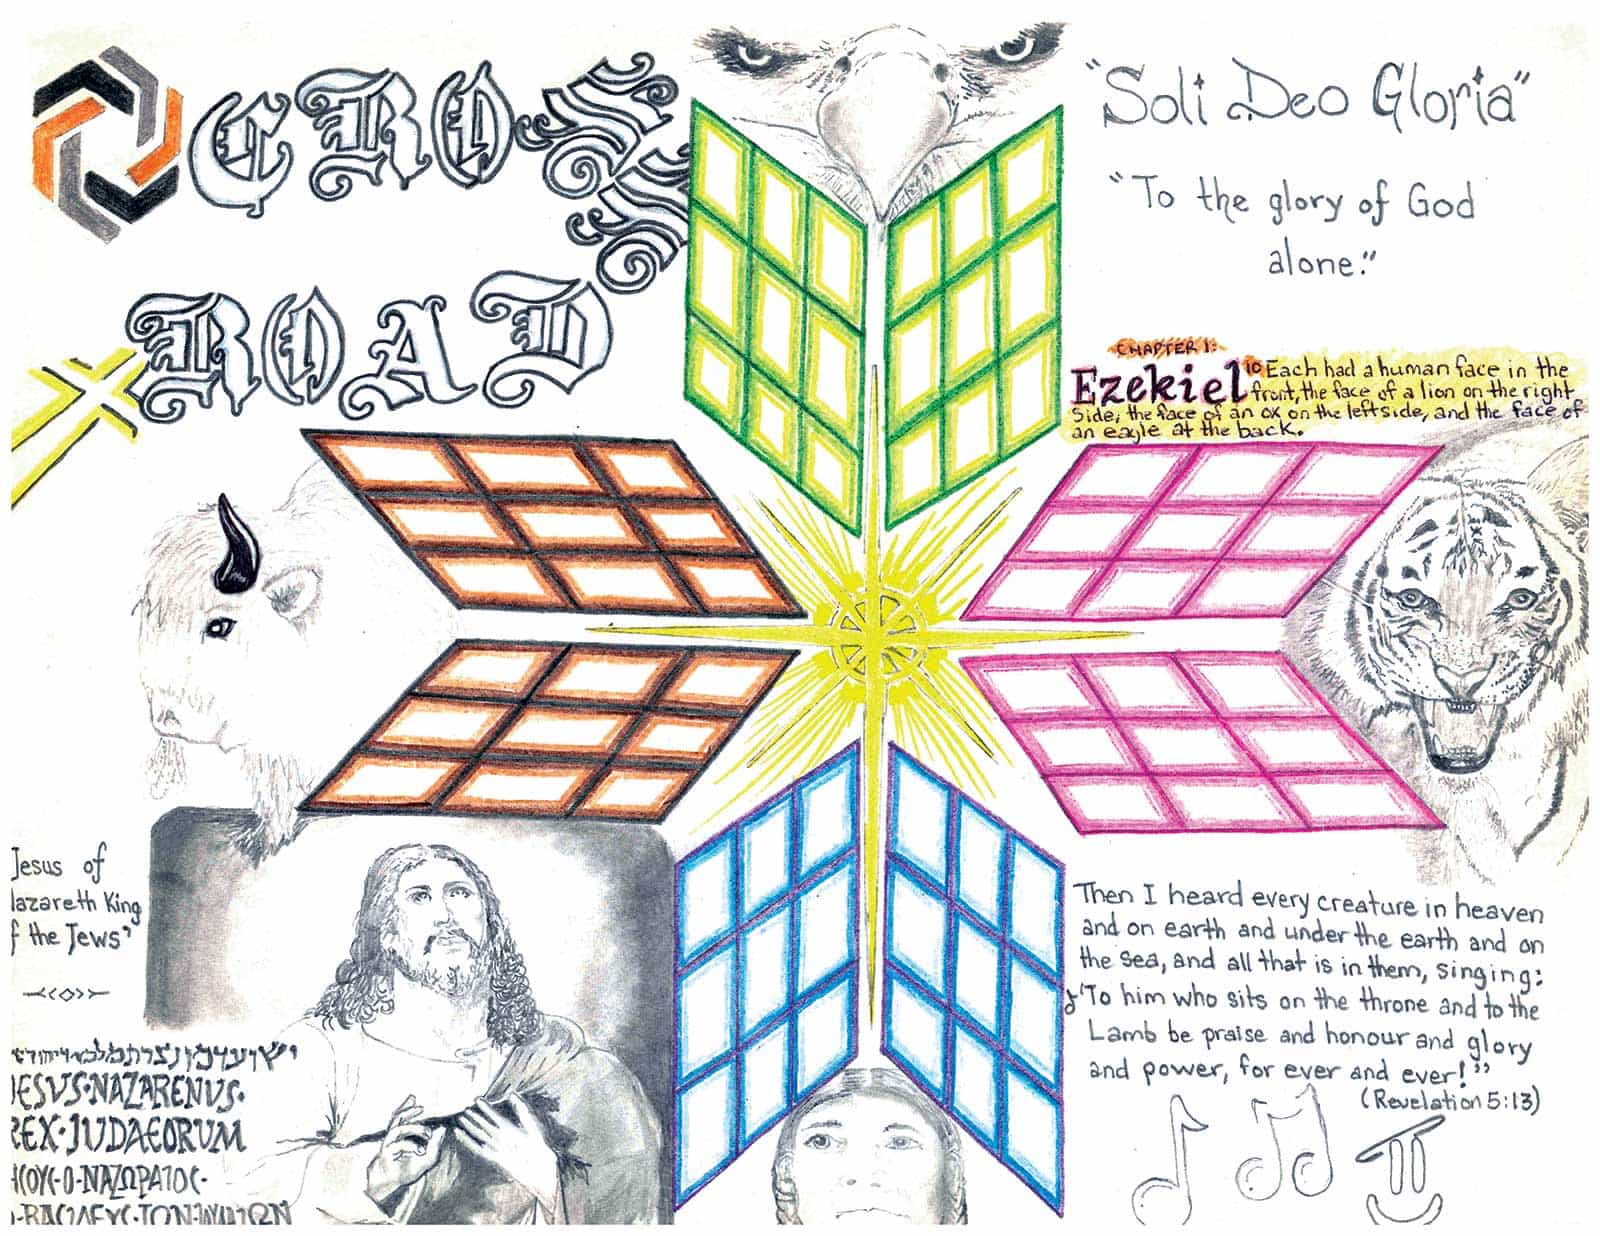 CROSS
ROAD
"Soli Deo Gloria"
"To the glory of God
alone."
CHAPTER 1:
Ezekiel 10 Each had a human face in the
front, the face of a lion on the right
side, the face of an ox on the left side, and the face of
an eagle at the back.
Jesus of
azareth King
f the Jews"
JESVS·NAZARENVS·
REX·JUDAEORUM
ΗCΟΥC·Ο·ΝΑΖΩΡΑΙΟC·
Then I heard every creature in heaven
and on earth and under the earth and on
the sea, and all that is in them, singing:
"To him who sits on the throne and to the
Lamb be praise and honour and glory
and power, for ever and ever!"
(Revelation 5:13)